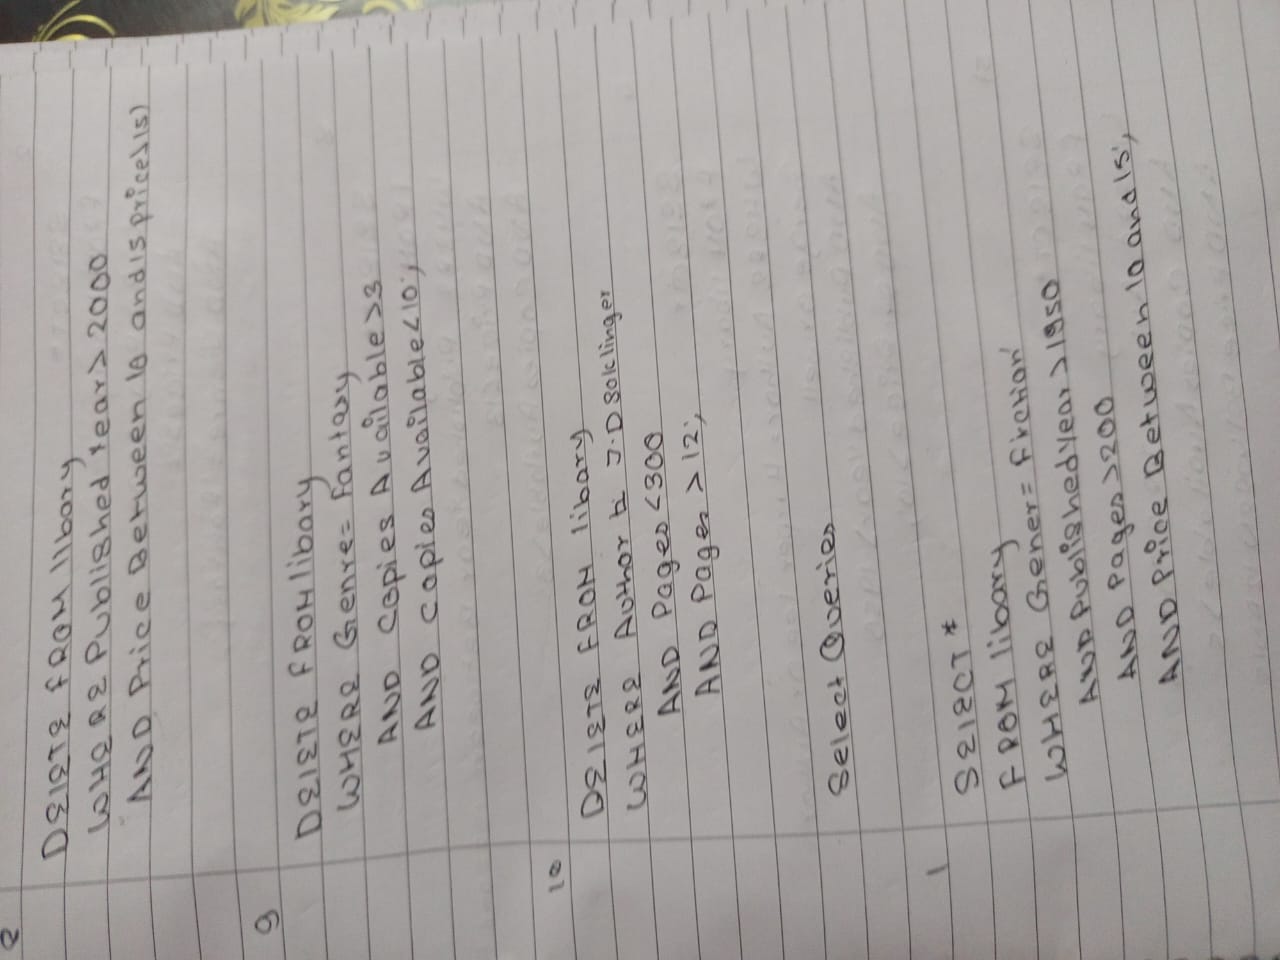 8
DEIETE FROM libary
WHERE Published Year > 2000
AND Price Between 10 and 15 price > 15)
9
DEIETE FROM libary
WHERE Genre = Fantasy
AND Copies Available > 3
AND Copies Available < 10;
10
DEIETE FROM libary
WHERE Author J.D Saklinger
AND Pages < 300
AND Pages > 12;
Select Queries
1
SEIECT *
FROM libary
WHERE Gener = firation'
AND Publishedyear > 1950
AND Pages > 200
AND Price Between 10 and 15;